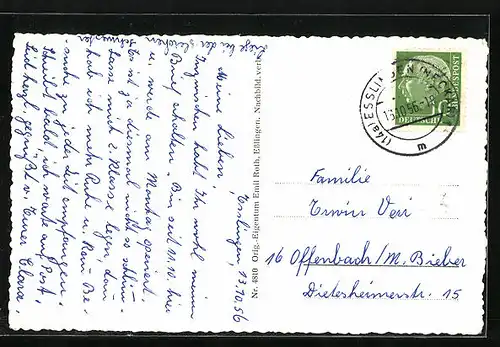 Esslingen, 13.10.56
Meine Lieben!
Inzwischen habt Ihr wohl meinen
Brief erhalten. Bin seit 11.10. hier
u. werde am Montag operiert.
Es ist ja diesmal nicht so schlim-
Lasse mich 2. Klasse legen, dann
hab ich mehr Ruhe u. kann Be-
suche zu jeder Zeit empfangen.
Schreibt bald, ich warte auf Post.
Seid herzl. gegrüßt v. Eurer Clara.
Liege bei der gleichen
Schwester
Nr. 4810 Orig.-Eigentum Emil Roth, Eßlingen. Nachbild. verb.
(14a) ESSLINGEN (NECKAR)
13.10.56.-18
m
DEUTSCHE BUNDESPOST
10
Familie
Erwin Veri
16 Offenbach/M. Bieber
Dietesheimerstr. 15